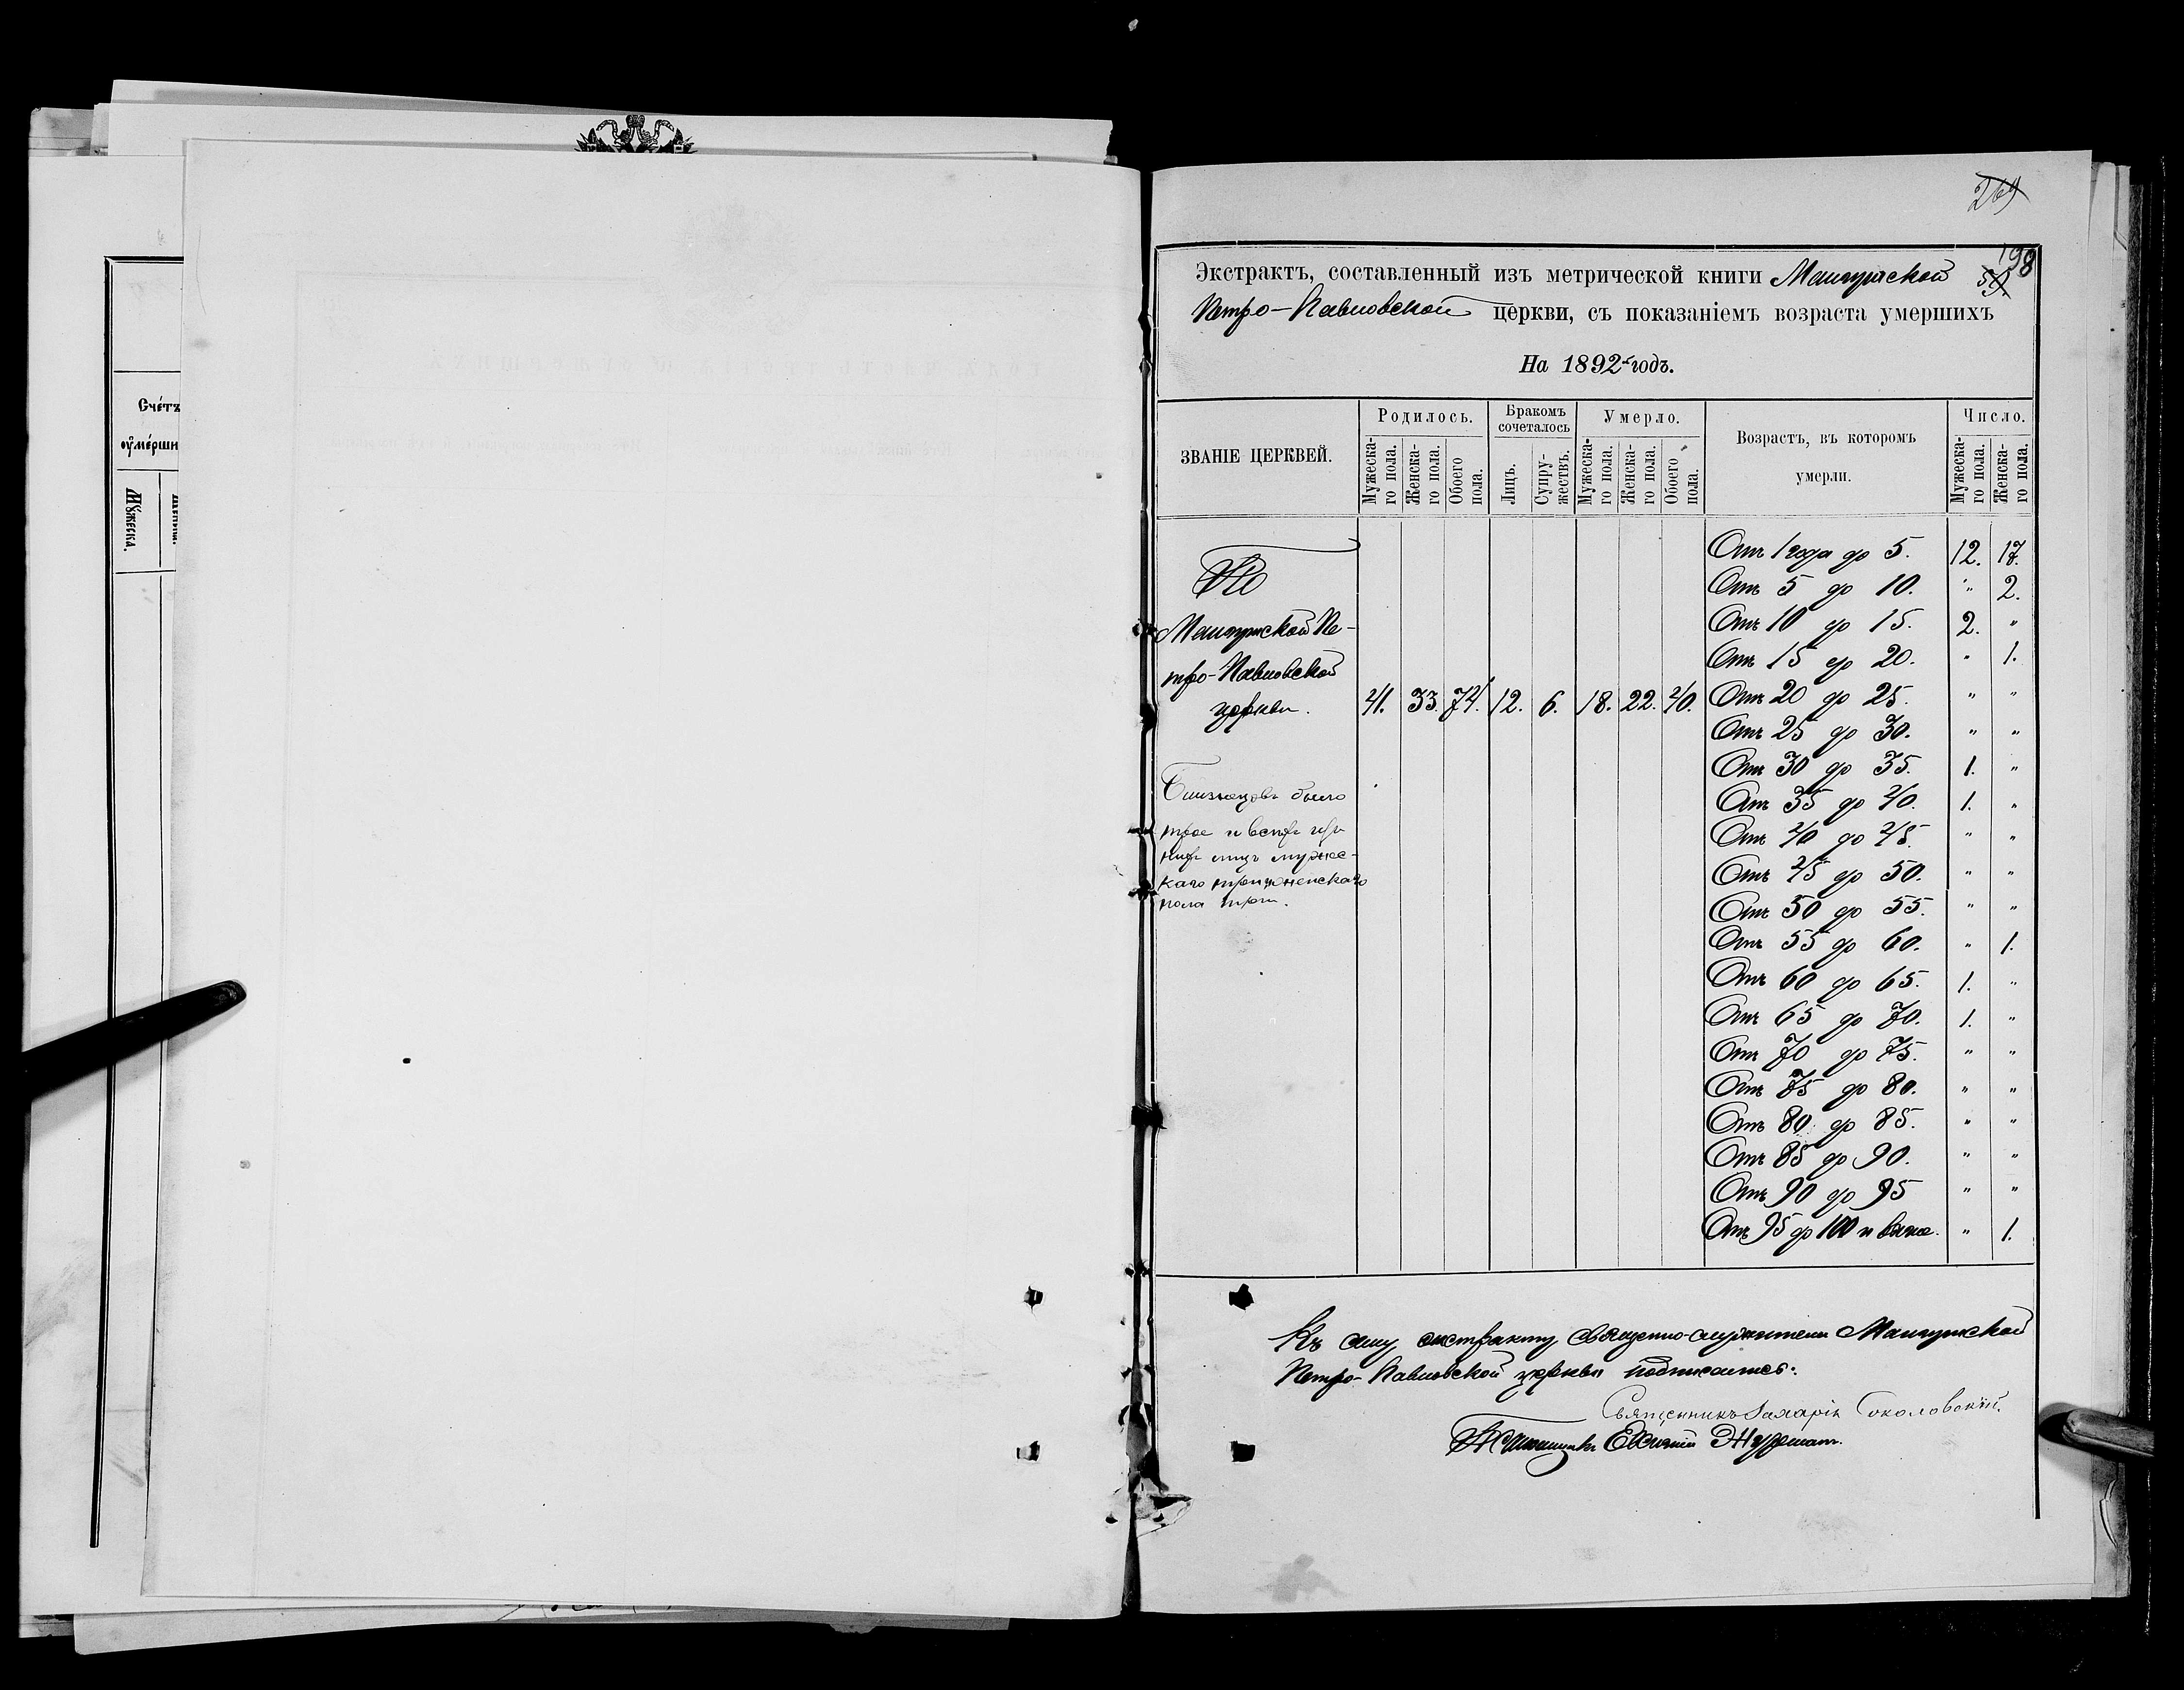 Счетъ
оумерши
Мужеска.
269
198
59.
Экстрактъ, составленный изъ метрической книги Мангушской
Петро-Павловской церкви, съ показаніемъ возраста умершихъ
На 1892 годъ.
ЗВАНІЕ ЦЕРКВЕЙ. Родилось. Бракомъ сочеталось Умерло. Возрастъ, въ которомъ умерли. Число.
Мужеска-го пола. Женска-го пола. Обоего пола. Лицъ. Супру-жествъ. Мужеска-го пола. Женска-го пола. Обоего пола. Мужеска-го пола. Женска-го пола.
По
Мангушской Пе-
тро-Павловской
церкви. 41. 33. 74. 12. 6. 18. 22. 40.
Близнецовъ было
трое и всего при
нихъ лицъ мужес-
каго три женскаго
пола три.
Отъ 1 года до 5. 12. 17.
Отъ 5 до 10. " 2.
Отъ 10 до 15. 2. "
Отъ 15 до 20. " 1.
Отъ 20 до 25. " "
Отъ 25 до 30. " "
Отъ 30 до 35. 1. "
Отъ 35 до 40. 1. "
Отъ 40 до 45. " "
Отъ 45 до 50. " "
Отъ 50 до 55. " "
Отъ 55 до 60. " 1.
Отъ 60 до 65. 1. "
Отъ 65 до 70. 1. "
Отъ 70 до 75. " "
Отъ 75 до 80. " "
Отъ 80 до 85. " "
Отъ 85 до 90. " "
Отъ 90 до 95 " "
Отъ 95 до 100 и выше. " 1.
Къ сему экстракту священно-служители Мангушской
Петро-Павловской церкви подписались:
Священникъ Захарія Соколовскій.
Псаломщикъ Евфимій